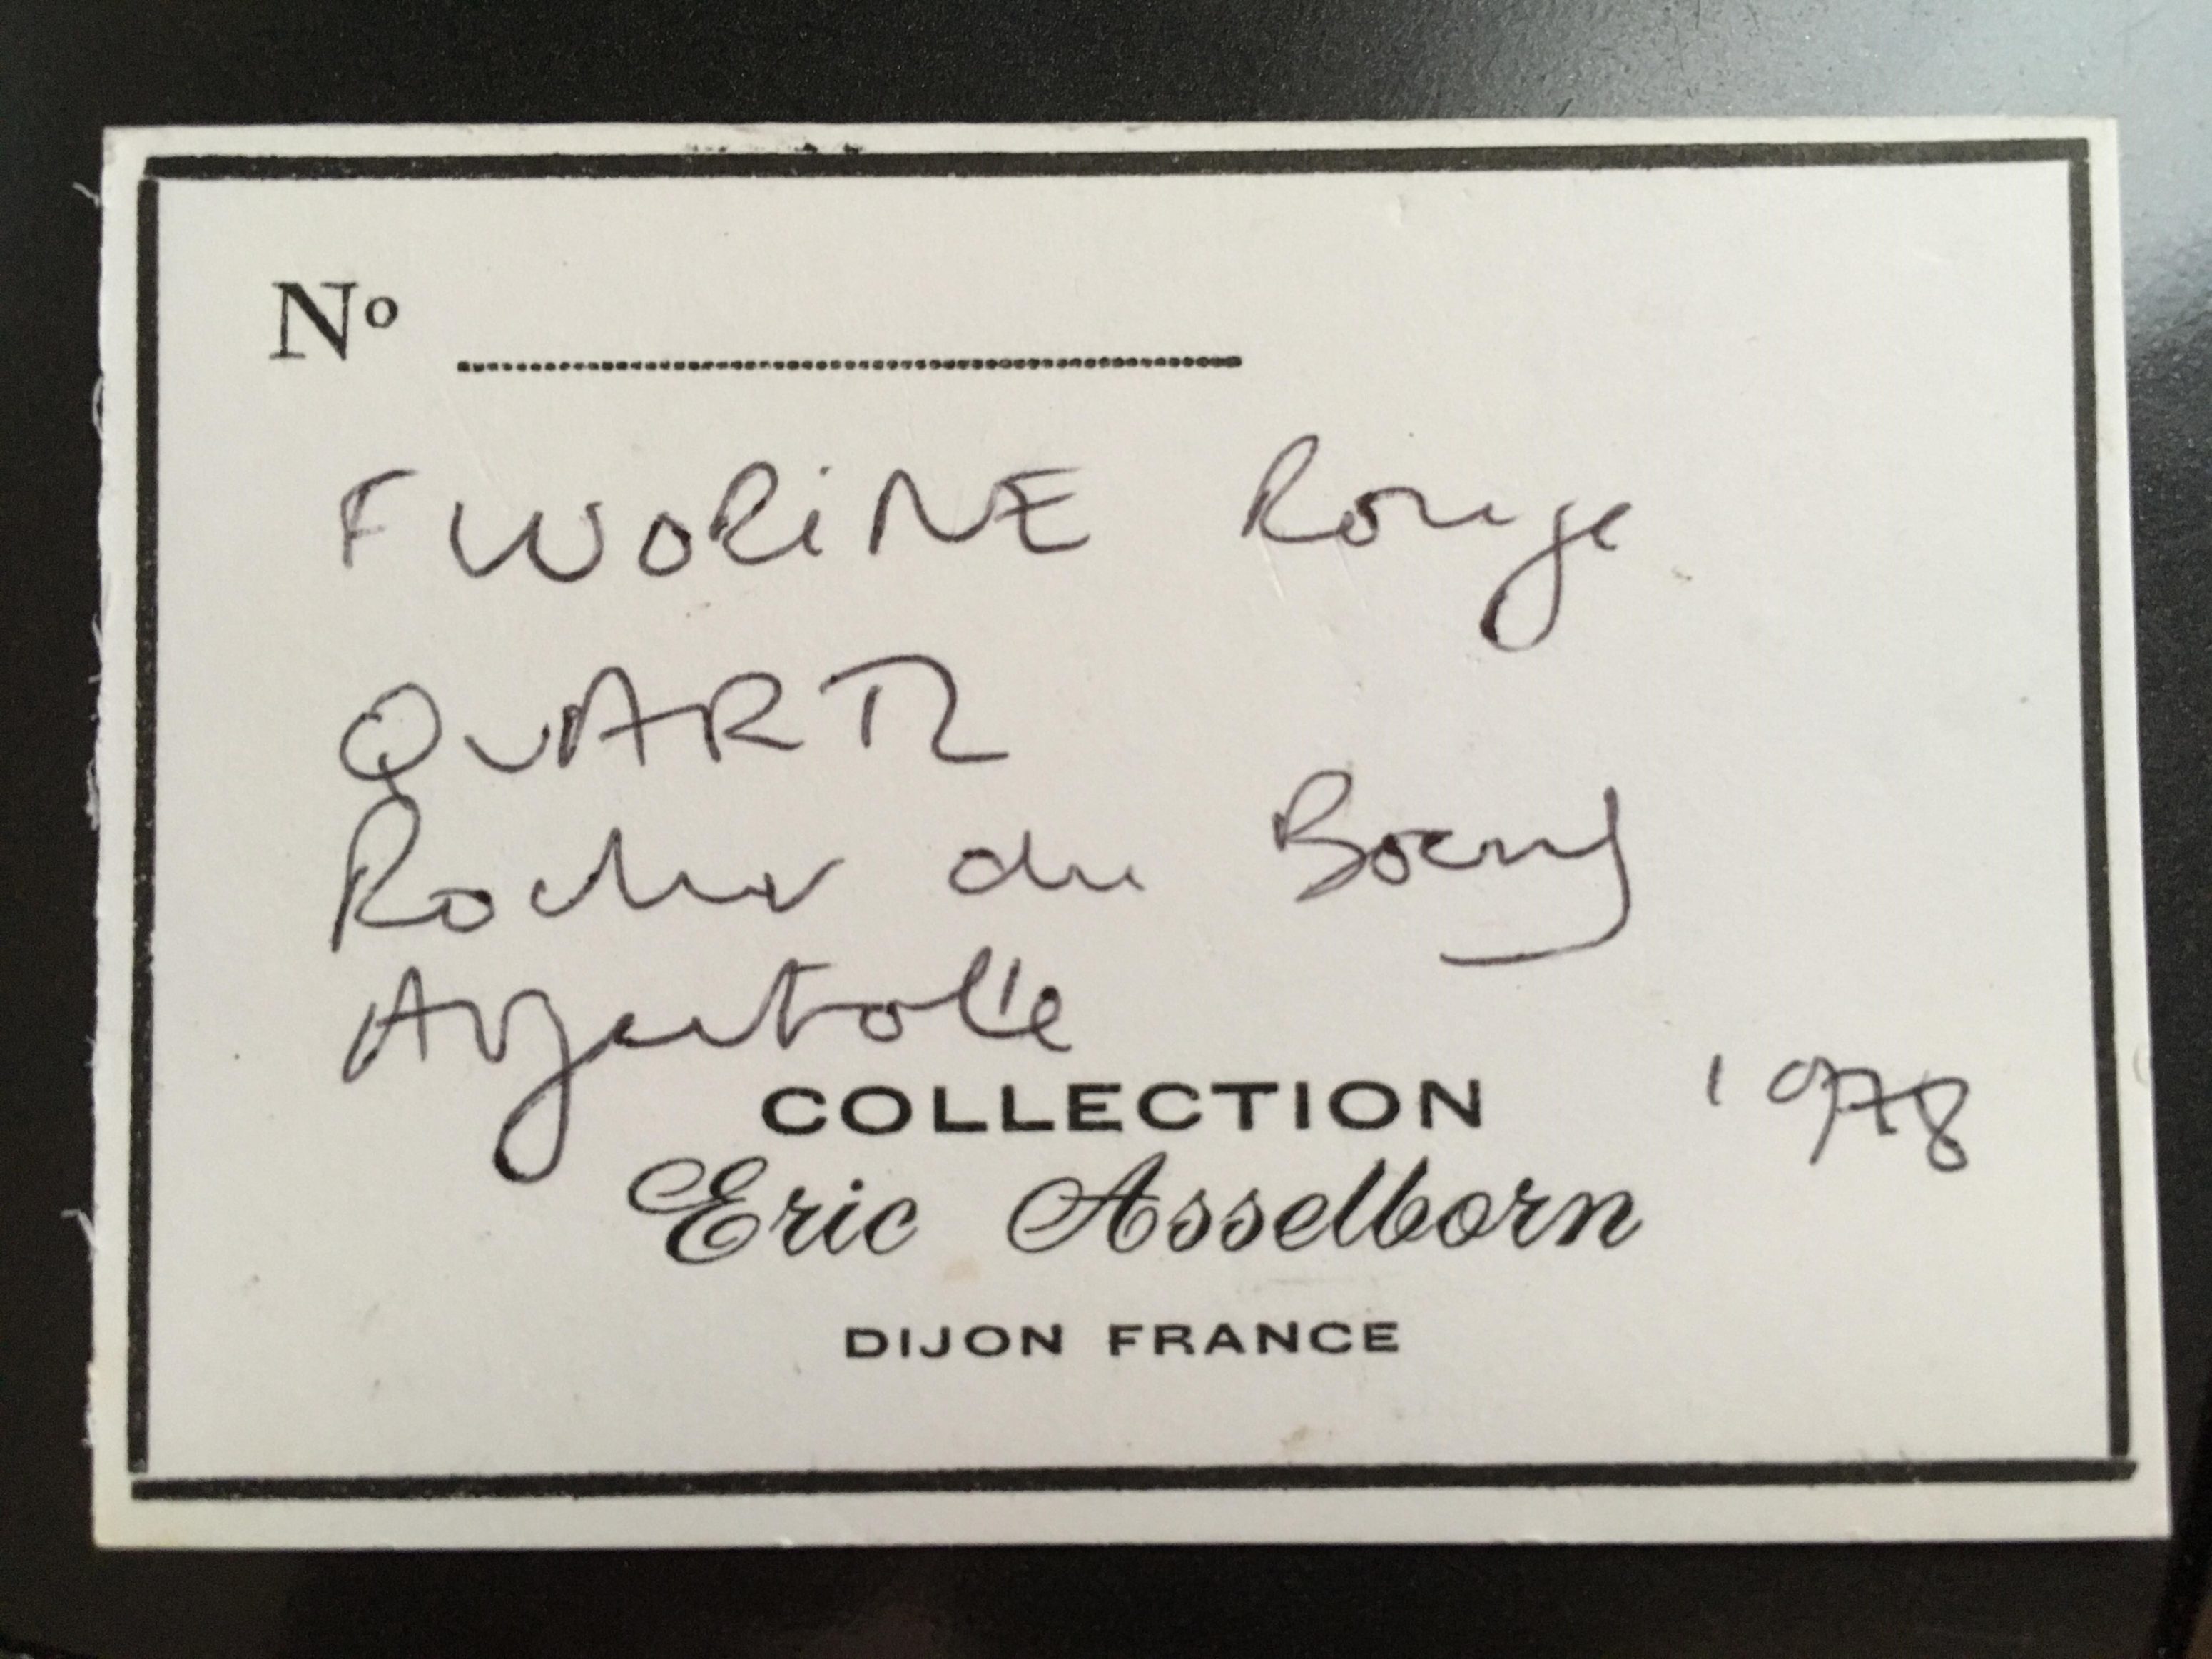 Nº
FLUORINE Rouge
QUARTZ
Rocher du Boeuf
Argentolle
1978
COLLECTION
Eric Asselborn
DIJON FRANCE